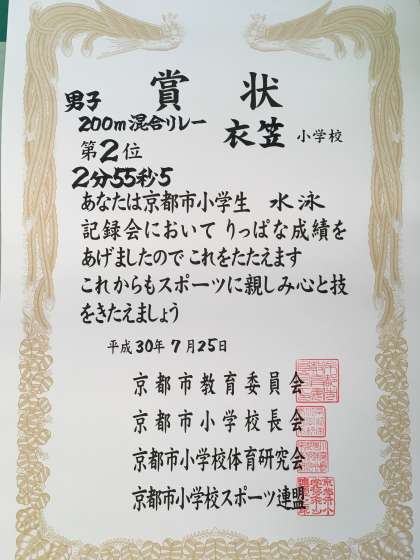 賞状
男子
200m混合リレー
衣笠 小学校
第2位
2分55秒5
あなたは京都市小学生 水泳
記録会において りっぱな成績を
あげましたので これをたたえます
これからもスポーツに親しみ心と技
をきたえましょう
平成30年7月25日
京都市教育委員会
京都市小学校長会
京都市小学校体育研究会
京都市小学校スポーツ連盟